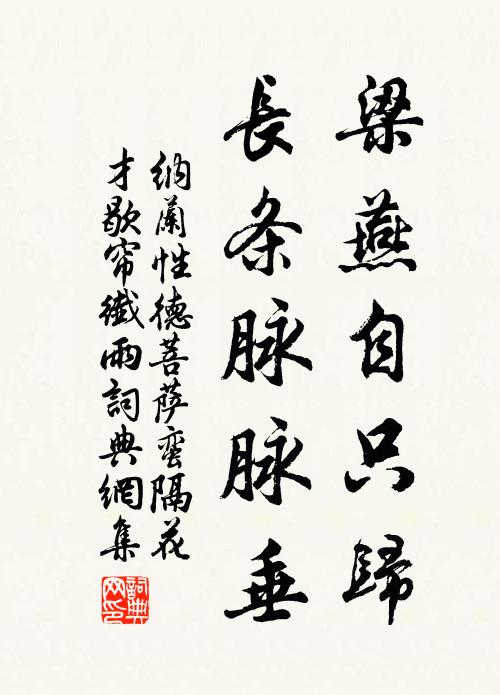 梁燕自只歸
長条脉脉垂
納蘭性德菩萨蛮隔花
才歇帘纖雨詞典網集
詞典网印